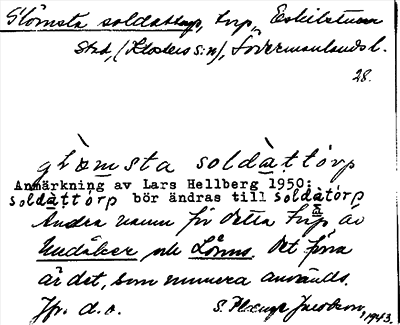 Glömsta soldattorp, torp, Eskilstuna
stad, (Klosters s:n), Södermanlands l.
28.
glòmsta soldàttórp
Anmärkning av Lars Hellberg 1950:
soldàttórp bör ändras till soldàtórp
Andra namn för detta torp äro
Undåker och Lönns. Det förra
är det, som numera användes.
Jfr. d. o.
S. Jacobson, 1943.